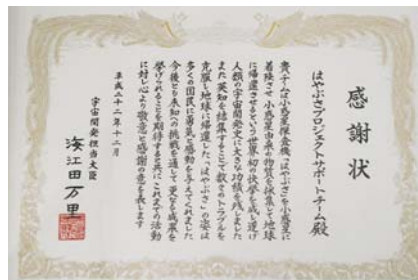 感謝状
はやぶさプロジェクトサポートチーム殿
貴チームは小惑星探査機「はやぶさ」を小惑星に
着陸させ小惑星由来の物質を採集して地球
に帰還させるという世界初の快挙を成し遂げ
人類の宇宙開発史に大きな功績を残しました
また英知を結集することで数々のトラブルを
克服し地球に帰還した「はやぶさ」の姿は
多くの国民に勇気と感動を与えてくれました
今後とも未知への挑戦を通して更なる成果を
挙げられることを期待すると共にこれまでの活動
に対し心より敬意と感謝の意を表します
平成二十二年十二月
宇宙開発担当大臣
海江田万里